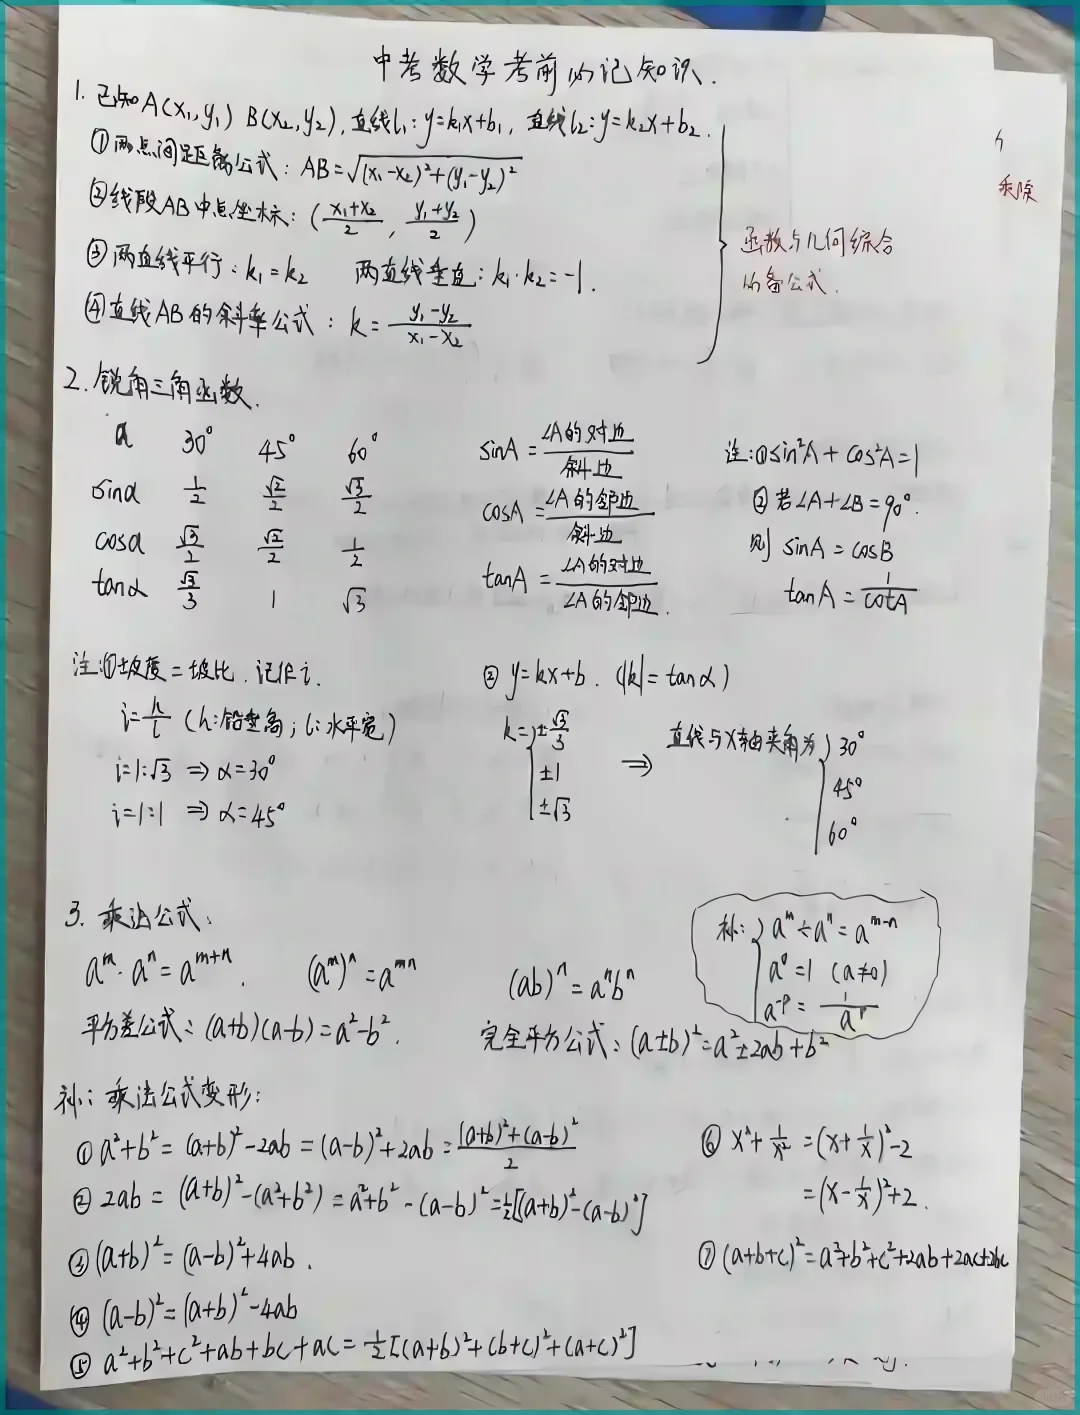 中考数学考前必记知识.
1. 已知A(x₁,y₁) B(x₂,y₂), 直线l₁: y=k₁x+b₁, 直线l₂: y=k₂x+b₂.
①两点间距离公式: AB=√((x₁-x₂)²+(y₁-y₂)²)
②线段AB中点坐标: ((x₁+x₂)/2, (y₁+y₂)/2)
③两直线平行: k₁=k₂ 两直线垂直: k₁·k₂=-1.
④直线AB的斜率公式: k=(y₁-y₂)/(x₁-x₂)
函数与几何综合
必备公式.
乘除
2. 锐角三角函数.
α 30° 45° 60°
sinα 1/2 √2/2 √3/2
cosα √3/2 √2/2 1/2
tanα √3/3 1 √3
sinA=∠A的对边/斜边
cosA=∠A的邻边/斜边
tanA=∠A的对边/∠A的邻边.
注:①sin²A+cos²A=1
②若∠A+∠B=90°.
则 sinA=cosB
tanA=1/cotA
注:①坡度=坡比. 记作i.
i=h/l (h:铅垂高; l:水平宽)
i=1:√3 ⇒ α=30°
i=1:1 ⇒ α=45°
② y=kx+b. (|k|=tanα)
k= ±√3/3
±1
±√3
⇒ 直线与x轴夹角为 30°
45°
60°
3. 乘法公式:
aᵐ·aⁿ=aᵐ⁺ⁿ. (aᵐ)ⁿ=aᵐⁿ (ab)ⁿ=aⁿbⁿ
补: aᵐ÷aⁿ=aᵐ⁻ⁿ
a⁰=1 (a≠0)
a⁻ᵖ=1/aᵖ
平方差公式: (a+b)(a-b)=a²-b². 完全平方公式: (a±b)²=a²±2ab+b²
补: 乘法公式变形:
① a²+b²=(a+b)²-2ab=(a-b)²+2ab=((a+b)²+(a-b)²)/2
② 2ab=(a+b)²-(a²+b²)=a²+b²-(a-b)²=1/2[(a+b)²-(a-b)²]
③ (a+b)²=(a-b)²+4ab.
④ (a-b)²=(a+b)²-4ab
⑤ a²+b²+c²+ab+bc+ac=1/2[(a+b)²+(b+c)²+(a+c)²]
⑥ x²+1/x²=(x+1/x)²-2
=(x-1/x)²+2.
⑦ (a+b+c)²=a²+b²+c²+2ab+2ac+2bc